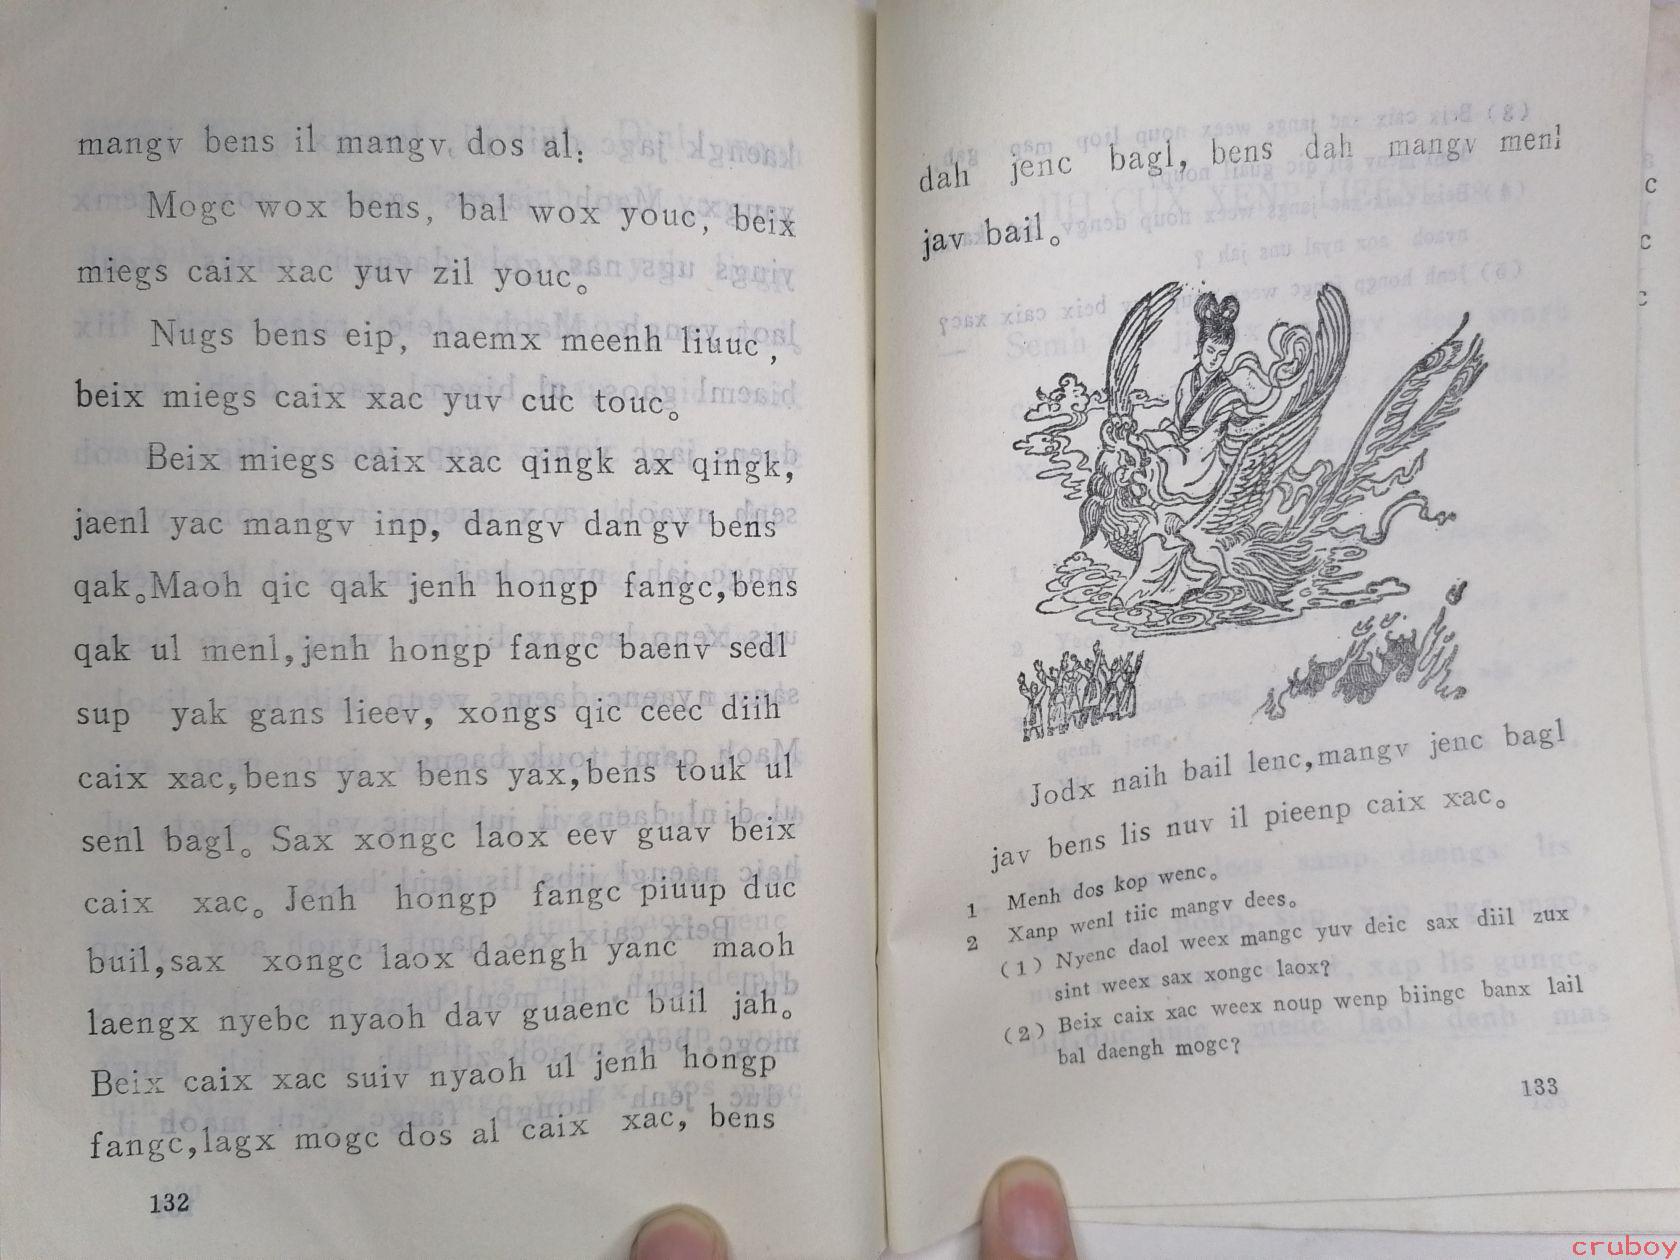 mangv bens il mangv dos al:
Mogc wox bens, bal wox youc, beix
miegs caix xac yuv zil youc。
Nugs bens eip, naemx meenh liuuc,
beix miegs caix xac yuv cuc touc。
Beix miegs caix xac qingk ax qingk,
jaenl yac mangv inp, dangv dangv bens
qak。Maoh qic qak jenh hongp fangc, bens
qak ul menl, jenh hongp fangc baenv sedl
sup yak gans lieev, xongs qic ceec diih
caix xac, bens yax bens yax, bens touk ul
senl bagl。Sax xongc laox eev guav beix
caix xac。Jenh hongp fangc piuup duc
buil, sax xongc laox daengh yanc maoh
laengx nyebc nyaoh dav guaenc buil jah。
Beix caix xac suiv nyaoh ul jenh hongp
fangc, lagx mogc dos al caix xac, bens
132
dah jenc bagl, bens dah mangv menl
jav bail。
Jodx naih bail lenc, mangv jenc bagl
jav bens lis nuv il pieenp caix xac。
1 Menh dos kop wenc。
2 Xanp wenl tiic mangv dees。
(1) Nyenc daol weex mangc yuv deic sax diil zux
sint weex sax xongc laox?
(2) Beix caix xac weex noup wenp biingc banx lail
bal daengh mogc?
133
cruboy